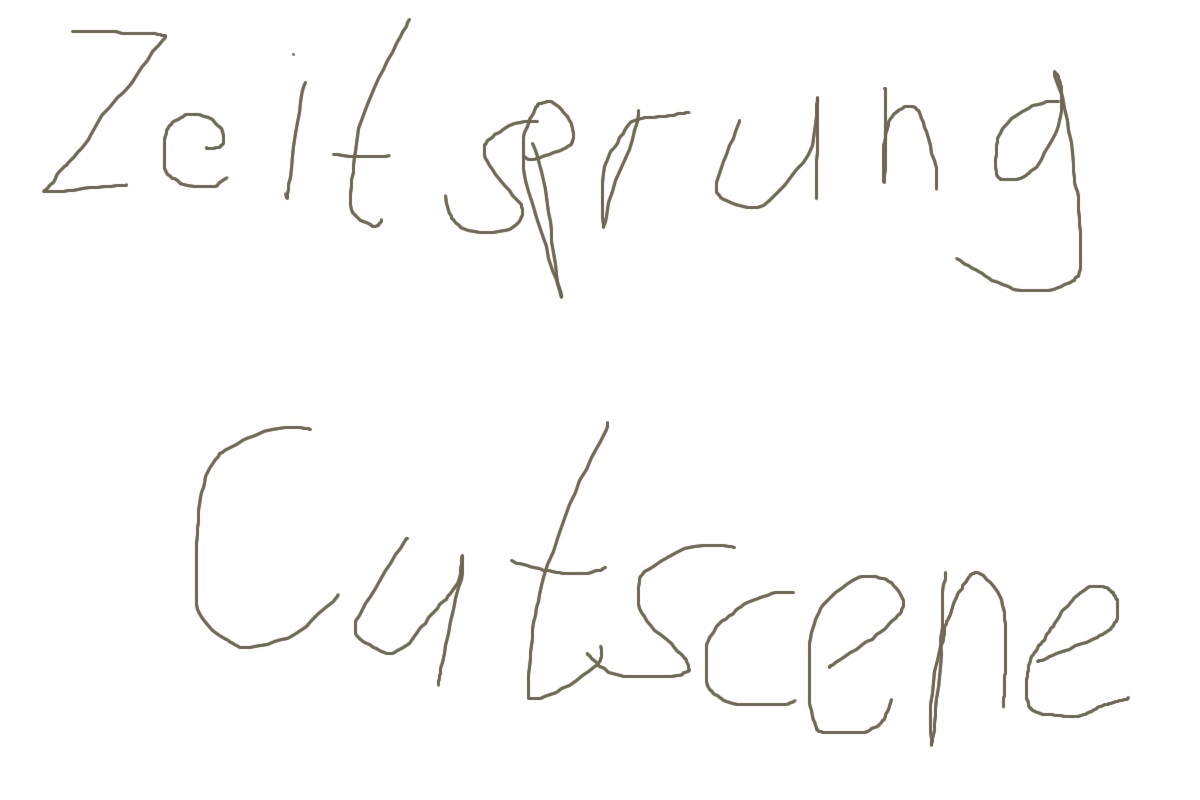 Zeitsprung
Cutscene